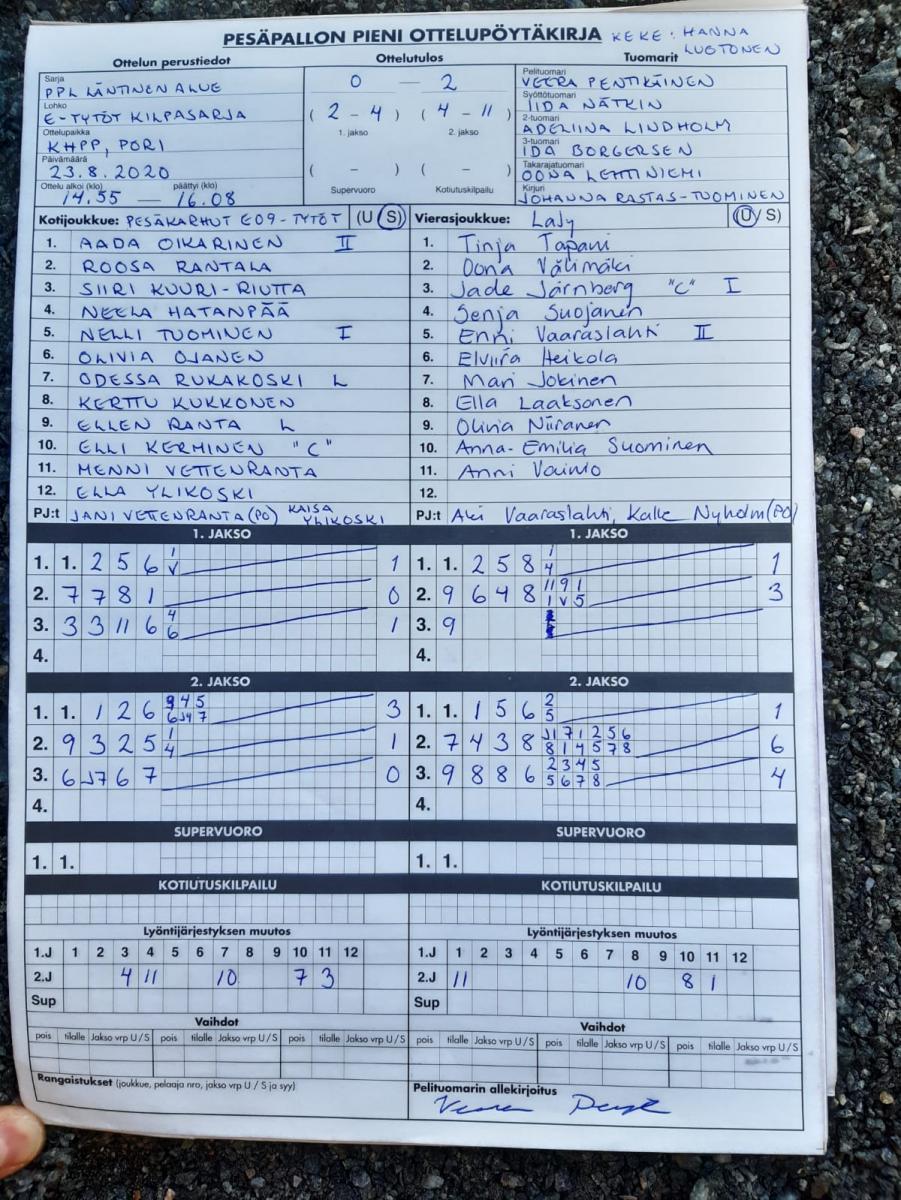 PESÄPALLON PIENI OTTELUPÖYTÄKIRJA KEKE: HANNA LUOTONEN
Ottelun perustiedot Ottelutulos Tuomarit
Sarja
PPL LÄNTINEN ALUE
Lohko
E-TYTÖT KILPASARJA
Ottelupaikka
KHPP, PORI
Päivämäärä
23.8.2020
Ottelu alkoi (klo) päättyi (klo)
14.55 — 16.08
0 — 2
( 2 - 4 ) ( 4 - 11 )
1. jakso 2. jakso
( - ) ( - )
Supervuoro Kotiutuskilpailu
Pelituomari
VEERA PENTIKÄINEN
Syöttötuomari
IIDA NÄTKIN
2-tuomari
ADELIINA LINDHOLM
3-tuomari
IDA BORGERSEN
Takarajatuomari
OONA LEHTINIEMI
Kirjuri
JOHANNA RASTAS-TUOMINEN
Kotijoukkue: PESÄKARHUT E09-TYTÖT (U S)
1. AADA OIKARINEN II
2. ROOSA RANTALA
3. SIIRI KUURI-RIUTTA
4. NEELA HATANPÄÄ
5. NELLI TUOMINEN I
6. OLIVIA OJANEN
7. ODESSA RUKAKOSKI L
8. KERTTU KUKKONEN
9. ELLEN RANTA L
10. ELLI KERMINEN "C"
11. MENNI VETTENRANTA
12. ELLA YLIKOSKI
PJ:t JANI VETTENRANTA (PO) KAISA YLIKOSKI
Vierasjoukkue: LaJy (U/ S)
1. Tinja Tapani
2. Oona Välimäki
3. Jade Järnberg "C" I
4. Senja Suojanen
5. Enni Vaaraslahti II
6. Elviira Heikola
7. Mari Jokinen
8. Ella Laaksonen
9. Olivia Niiranen
10. Anna-Emilia Suominen
11. Anni Vainio
12.
PJ:t Aki Vaaraslahti, Kalle Nyholm (PO)
1. JAKSO
1. 1. 2 5 6 1 V 1
2. 7 7 8 1 0
3. 3 3 11 6 4 6 1
4.
1. JAKSO
1. 1. 2 5 8 1 4 1
2. 9 6 4 8 11 9 1 1 V 5 3
3. 9
4.
2. JAKSO
1. 1. 1 2 6 9 4 5 6 J4 7 3
2. 9 3 2 5 1 4 1
3. 6 J7 6 7 0
4.
2. JAKSO
1. 1. 1 5 6 2 5 1
2. 7 4 3 8 J1 7 1 2 5 6 8 1 4 5 7 8 6
3. 9 8 8 6 2 3 4 5 5 6 7 8 4
4.
SUPERVUORO
1. 1.
SUPERVUORO
1. 1.
KOTIUTUSKILPAILU
KOTIUTUSKILPAILU
Lyöntijärjestyksen muutos
1.J 1 2 3 4 5 6 7 8 9 10 11 12
2.J 4 11 10 7 3
Sup
Lyöntijärjestyksen muutos
1.J 1 2 3 4 5 6 7 8 9 10 11 12
2.J 11 10 8 1
Sup
Vaihdot
pois tilalle Jakso vrp U / S pois tilalle Jakso vrp U / S pois tilalle Jakso vrp U / S
Vaihdot
pois tilalle Jakso vrp U / S pois tilalle Jakso vrp U / S pois tilalle Jakso vrp U / S
Rangaistukset (joukkue, pelaaja nro, jakso vrp U / S ja syy)
Pelituomarin allekirjoitus